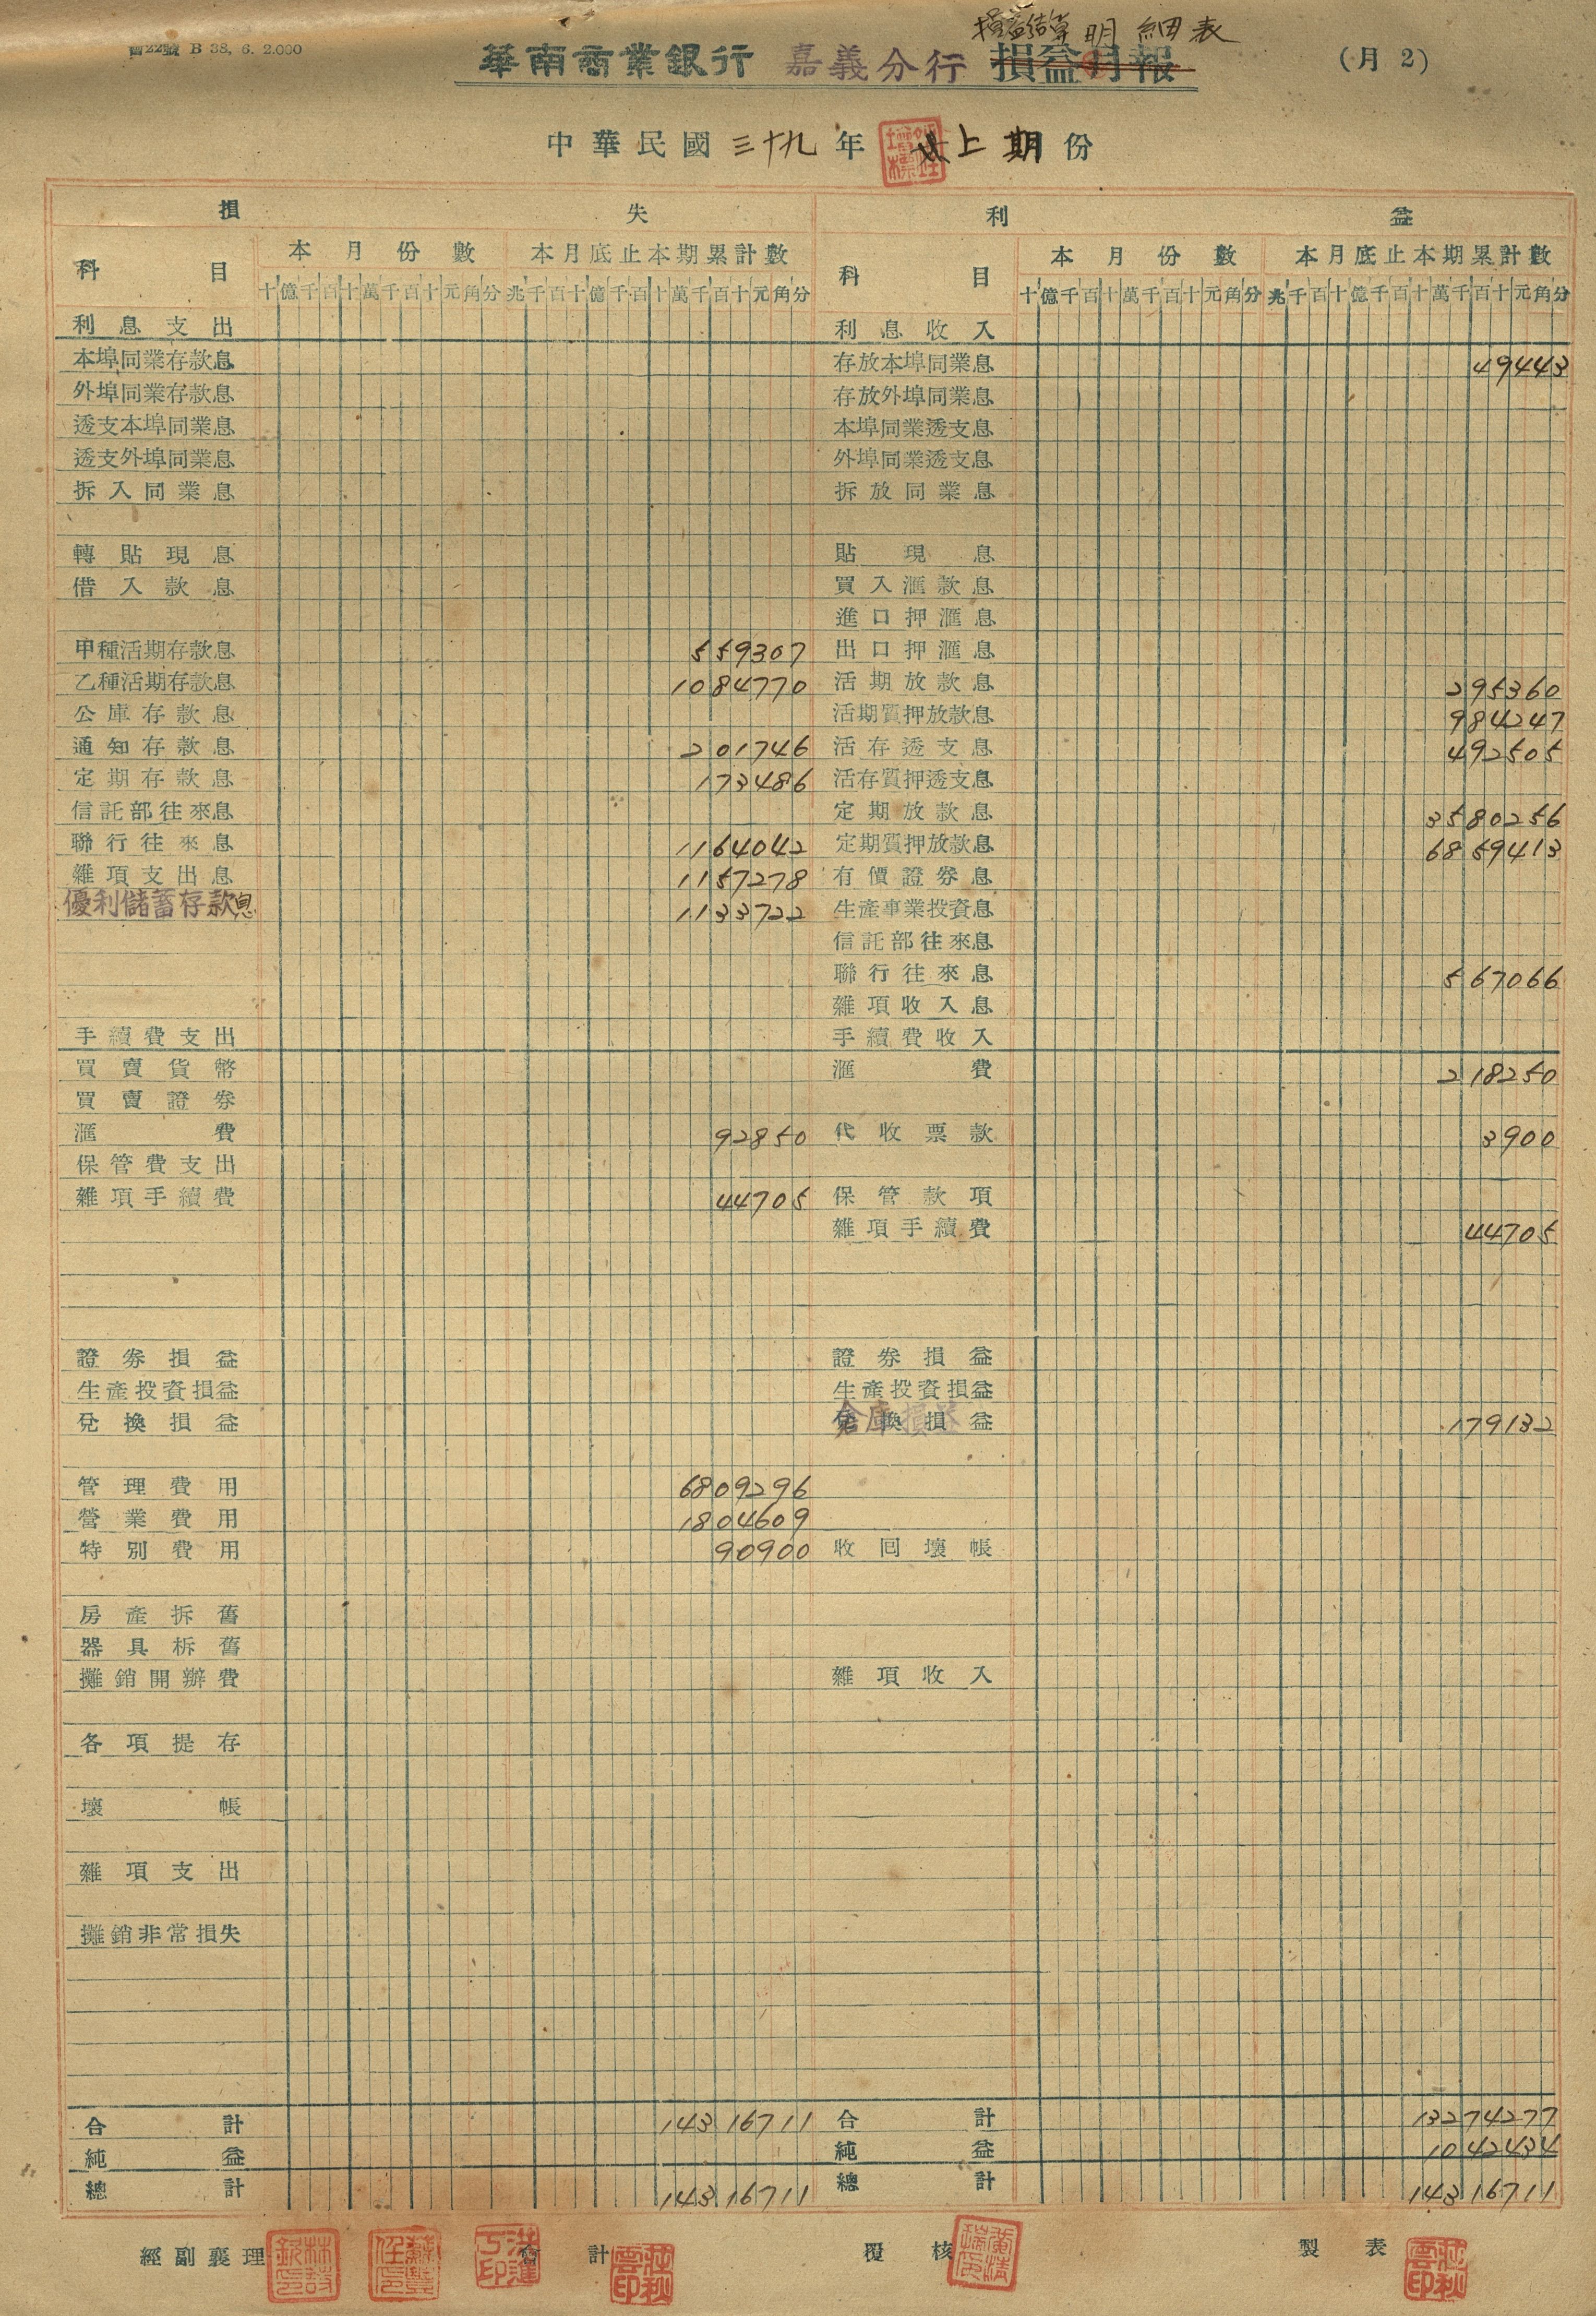 書22號 B 38. 6. 2.000
損益結算明細表
華南商業銀行 嘉義分行 損益月報 (月 2)
中華民國三十九年 上期 份
損 失 利 益
科 目 本 月 份 數 本月底止本期累計數 科 目 本 月 份 數 本月底止本期累計數
十億千百十萬千百十元角分 兆千百十億千百十萬千百十元角分 十億千百十萬千百十元角分 兆千百十億千百十萬千百十元角分
利息支出 利息收入
本埠同業存款息 存放本埠同業息 49443
外埠同業存款息 存放外埠同業息
透支本埠同業息 本埠同業透支息
透支外埠同業息 外埠同業透支息
拆入同業息 拆放同業息
轉貼現息 貼現息
借入款息 買入滙款息
進口押滙息
甲種活期存款息 559307 出口押滙息
乙種活期存款息 1084770 活期放款息 295360
公庫存款息 活期質押放款息 984247
通知存款息 201746 活存透支息 492505
定期存款息 173486 活存質押透支息
信託部往來息 定期放款息 3580256
聯行往來息 1164042 定期質押放款息 6859413
雜項支出息 1157278 有價證券息
優利儲蓄存款息 1133722 生產事業投資息
信託部往來息
聯行往來息 567066
雜項收入息
手續費支出 手續費收入
買賣貨幣 滙費 218250
買賣證券
滙費 92850 代收票款 3900
保管費支出
雜項手續費 44705 保管款項
雜項手續費 44705
證券損益 證券損益
生產投資損益 生產投資損益
兌換損益 倉庫損益 179132
管理費用 6809296
營業費用 1804609
特別費用 90900 收回壞帳
房產拆舊
器具柝舊
攤銷開辦費 雜項收入
各項提存
壞帳
雜項支出
攤銷非常損失
合計 14316711 合計 13274277
純益 純益 1042434
總計 14316711 總計 14316711
經副襄理 會計 覆核 製表